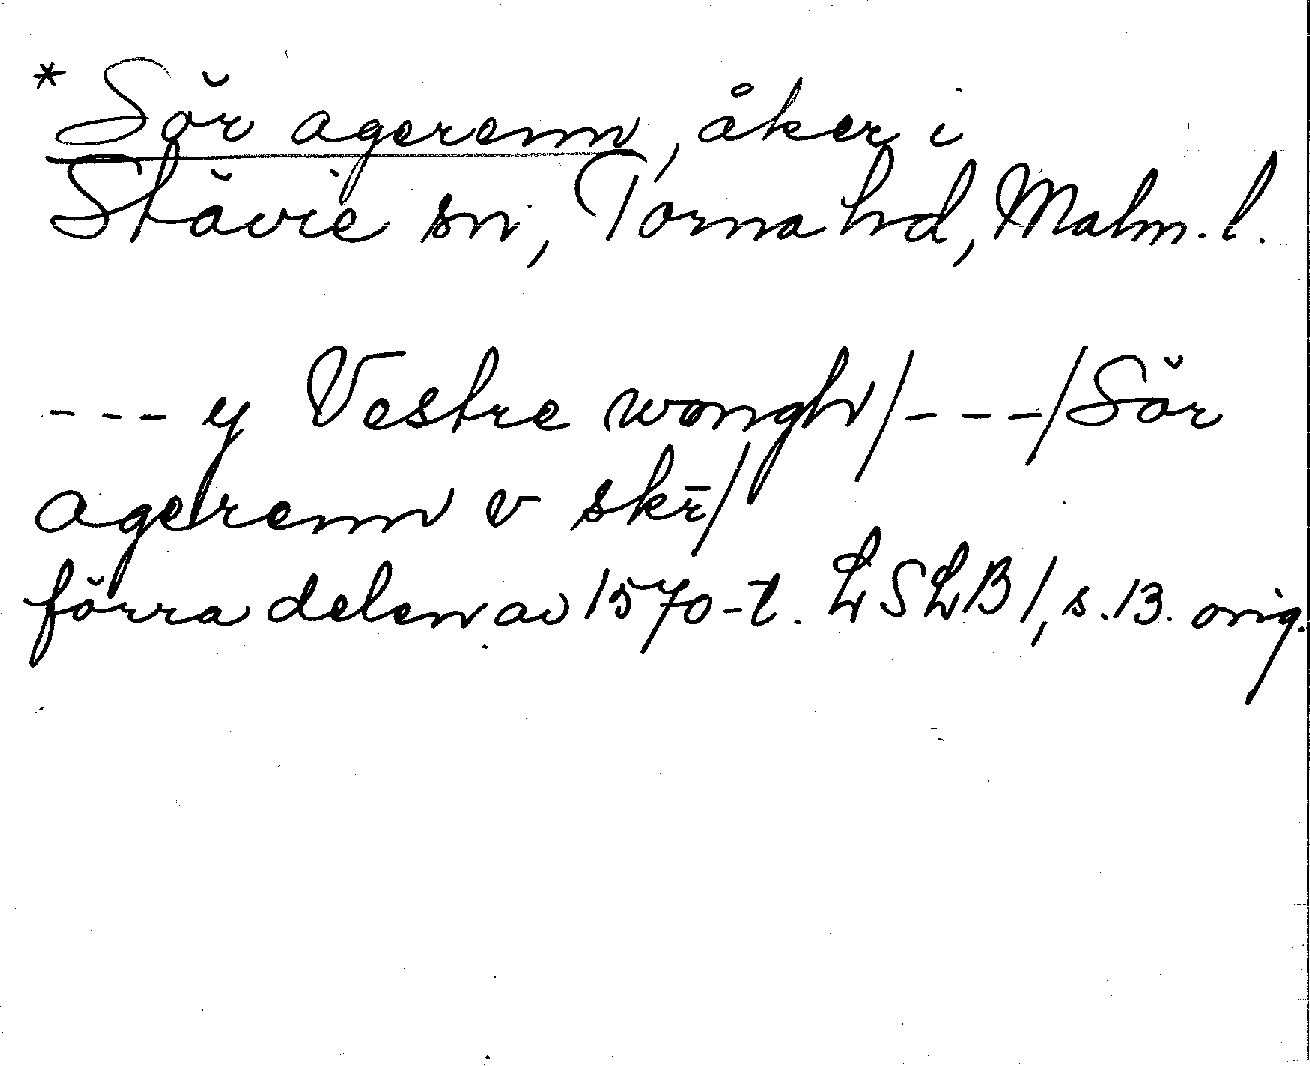 * Sör agerenn, åker i
Stävie sn, Torna hd, Malm. l.
--- y Vestre wongh/---/Sör
agerenn v skr̄/
förra delen av 1570-t. LSLB 1, s. 13. orig.